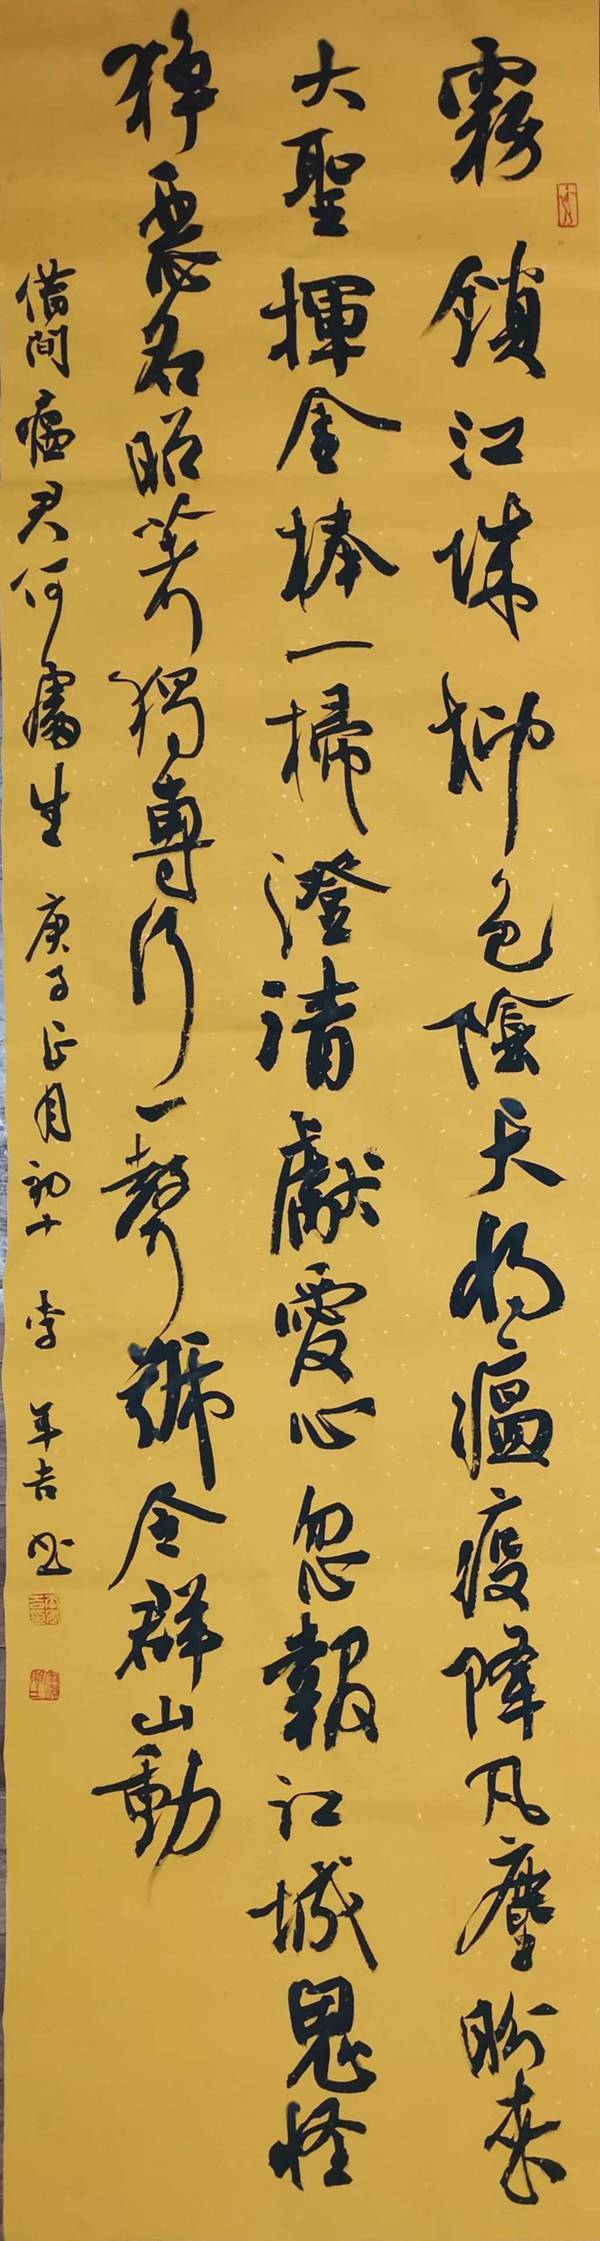 霧鎖江城柳色險天將瘟疫降凡塵盼來
大聖揮金棒一掃澄清獻愛心忽報江城鬼怪
猙惡名昭著獨專行一聲號令群山動
借問瘟君何處生 庚子正月初十 李年吉書